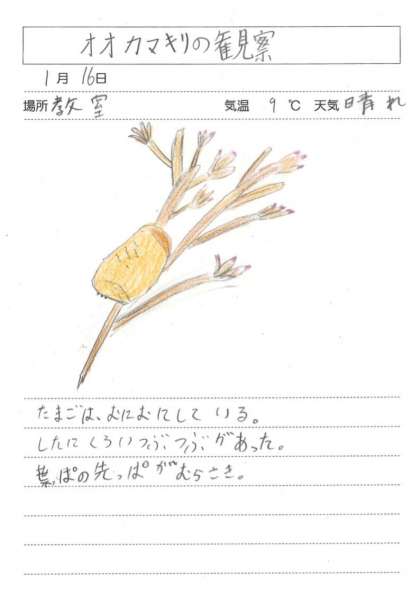 オオカマキリの観察
1月 16日
場所 教室 気温 9 ℃ 天気 晴れ
たまごは、むにむにしている。
したにくろいつぶつぶがあった。
葉っぱの先っぱがむらさき。